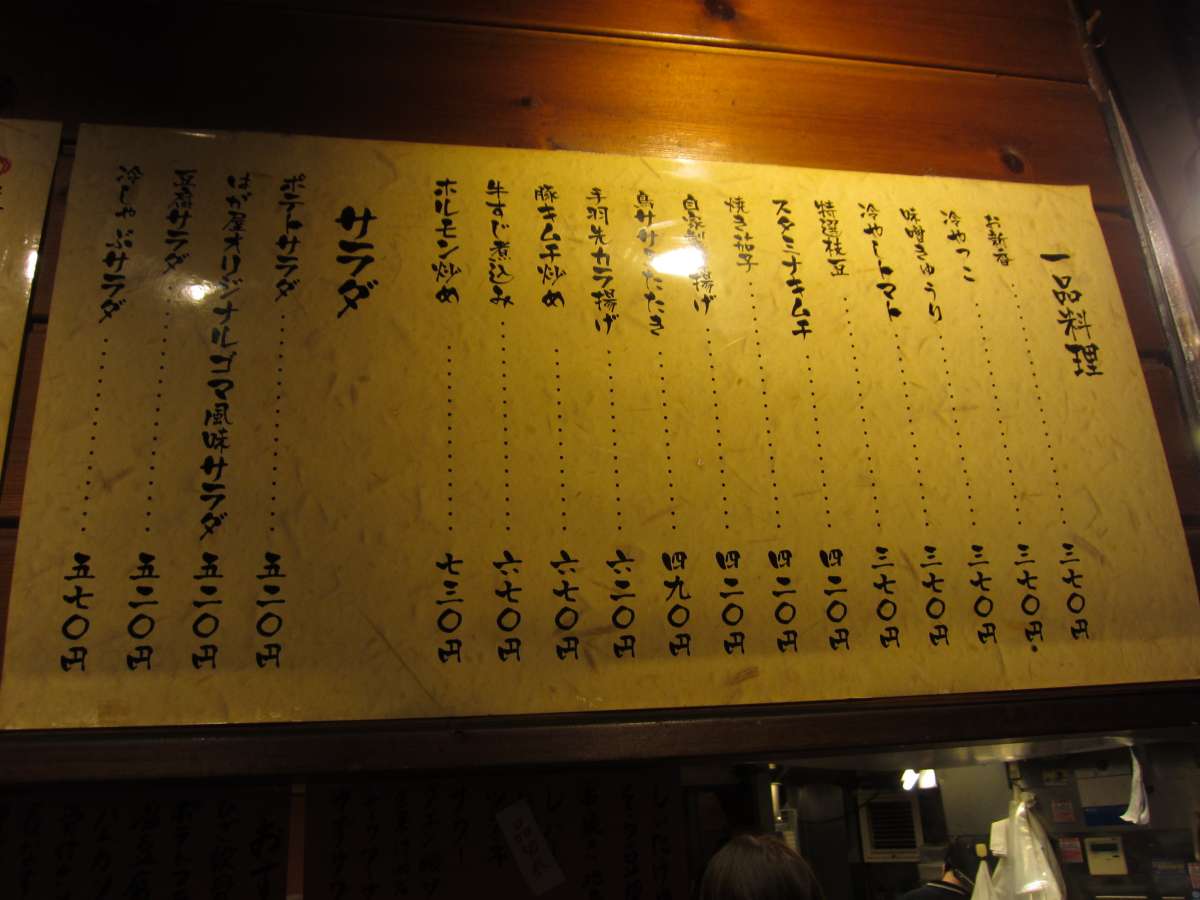 一品料理
お新香……三七〇円
冷やっこ……三七〇円
味噌きゅうり……三七〇円
冷やしトマト……三七〇円
特選枝豆……三七〇円
スタミナキムチ……四二〇円
焼き茄子……四二〇円
自家製 揚げ……四二〇円
鳥ササミたたき……四九〇円
手羽先カラ揚げ……六二〇円
豚キムチ炒め……六七〇円
牛すじ煮込み……六七〇円
ホルモン炒め……七二〇円
サラダ
ポテトサラダ……五二〇円
はが屋オリジナルゴマ風味サラダ 五二〇円
サラダ……五二〇円
冷しゃぶサラダ……五七〇円